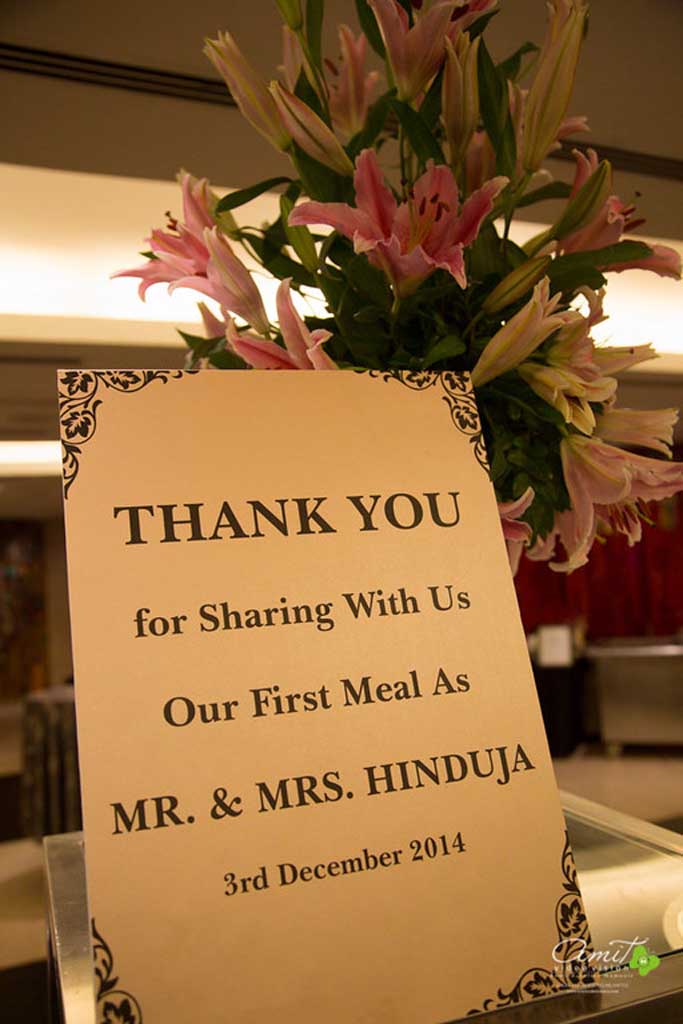 THANK YOU
for Sharing With Us
Our First Meal As
MR. & MRS. HINDUJA
3rd December 2014
amit
video vision